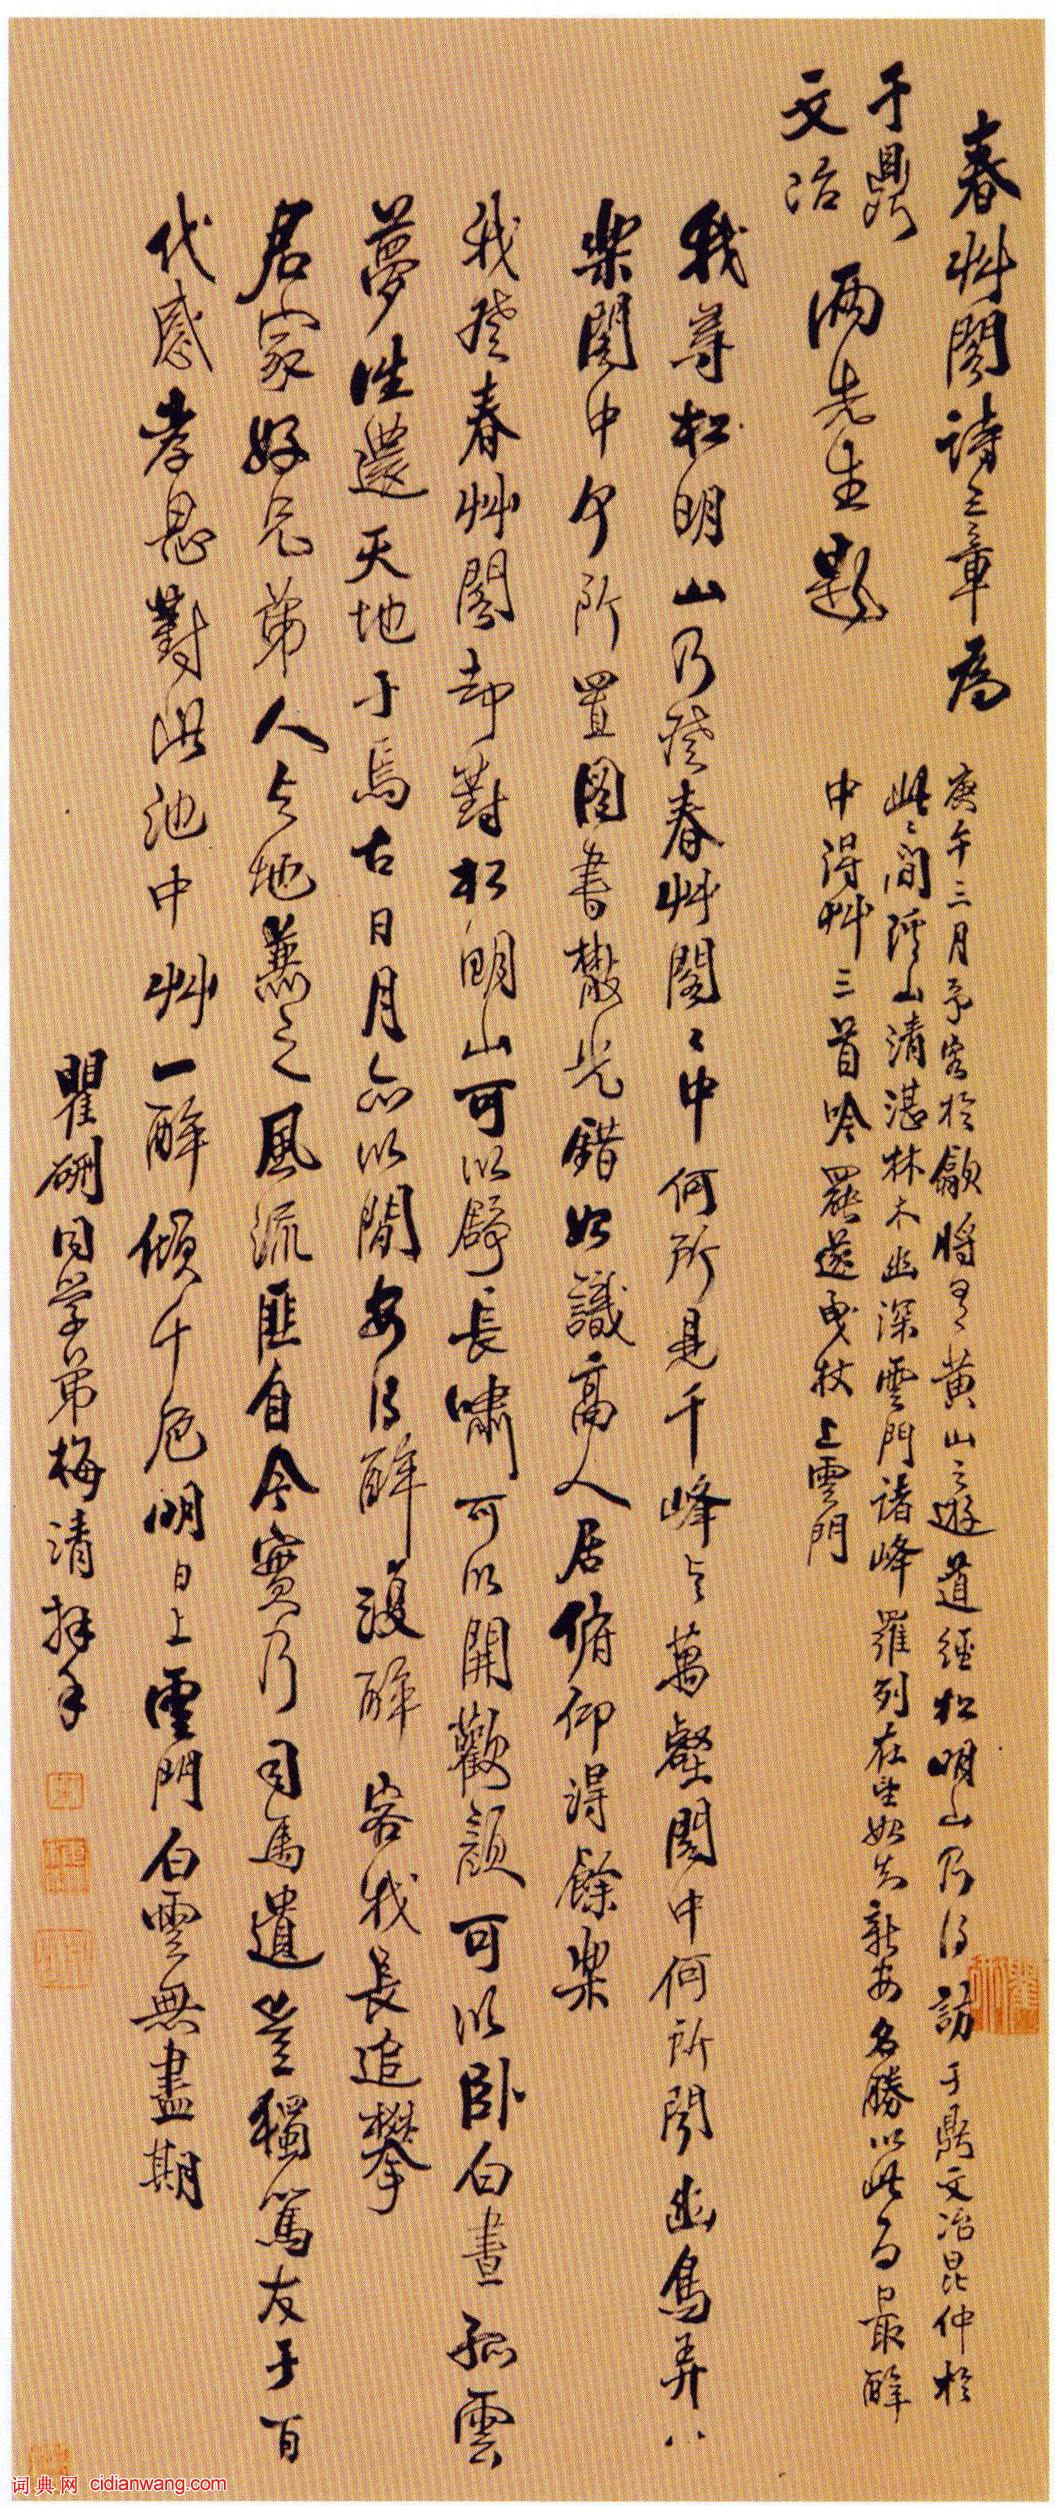 春艸閣詩三章為
于鼎
文冶
兩先生題
庚午三月予客於歙將有黃山之遊道經松明山乃得訪于鼎文冶昆仲於
此間隨山清湛林木幽深雲門諸峰羅列在望如失新安名勝以此為最醉
中得艸三首吟罷遂曳杖上雲門
我尋松明山乃登春艸閣〻中何所見千峰與萬壑閣中何所聞幽鳥弄八
樂閣中何所置圖書散光錯如識高人居俯仰得餘樂
我登春艸閣却對松明山可以舒長嘯可以開歡顏可以臥白晝孤雲
夢往還天地于焉古日月亦以閒安得醉復醉容我長追攀
君家好兄弟人與地兼之風流匪自今實乃司馬遺豈獨篤友于百
代感孝思對此池中艸一醉傾千卮明日上雲門白雲無盡期
瞿硎同學弟梅清拜手
词典网 cidianwang.com